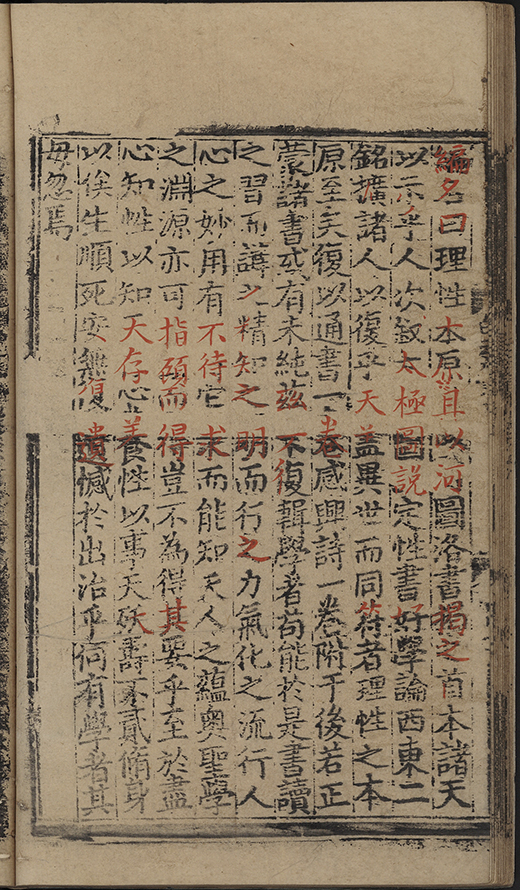 編名曰理性本原以河圖洛書揭之首本諸天
以示乎人次敘太極圖說定性書好學論西東二
銘擴諸人以復乎天蓋異世而同符者理性之本
原至矣復以通書一卷感興詩一卷附于後若正
蒙諸書或有未純茲不復輯學者苟能於是書讀
之習而講之精知之明而行之力氣化之流行人
心之妙用有不待它求而能知天人之蘊奧聖學
之淵源亦可指而得豈不為得其要乎至於盡
心知性以知天存心養性以事天殀壽不貳脩身
以俟生順死安無復遺憾於出治乎何有學者其
毋忽焉